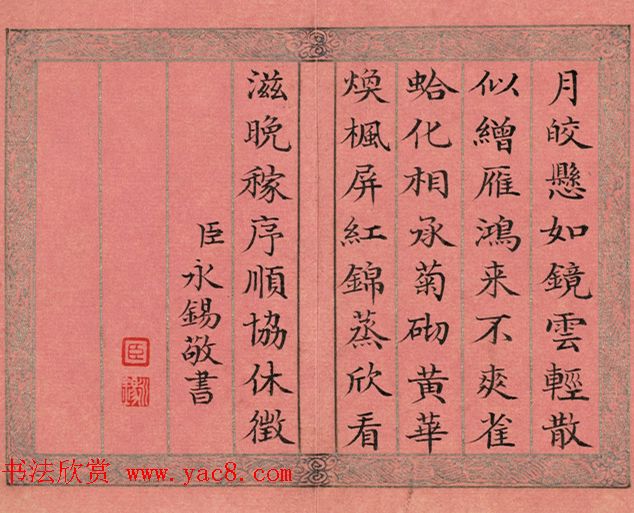 月皎懸如鏡雲輕散
似繒雁鴻来不爽雀
蛤化相承菊砌黄華
煥楓屏紅錦蒸欣看
滋晩稼序順協休徴
臣永錫敬書
臣
永錫
书法欣赏 www.yac8.com